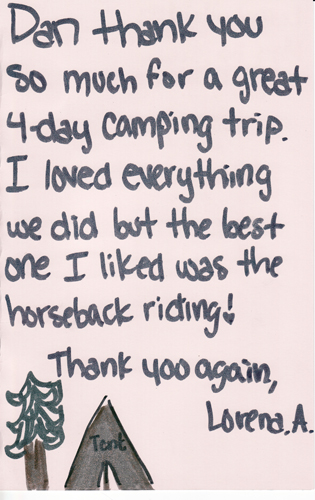 Dan thank you
so much for a great
4-day camping trip.
I loved everything
we did but the best
one I liked was the
horseback riding!
Thank yoo again,
Lorena.A.
Tent